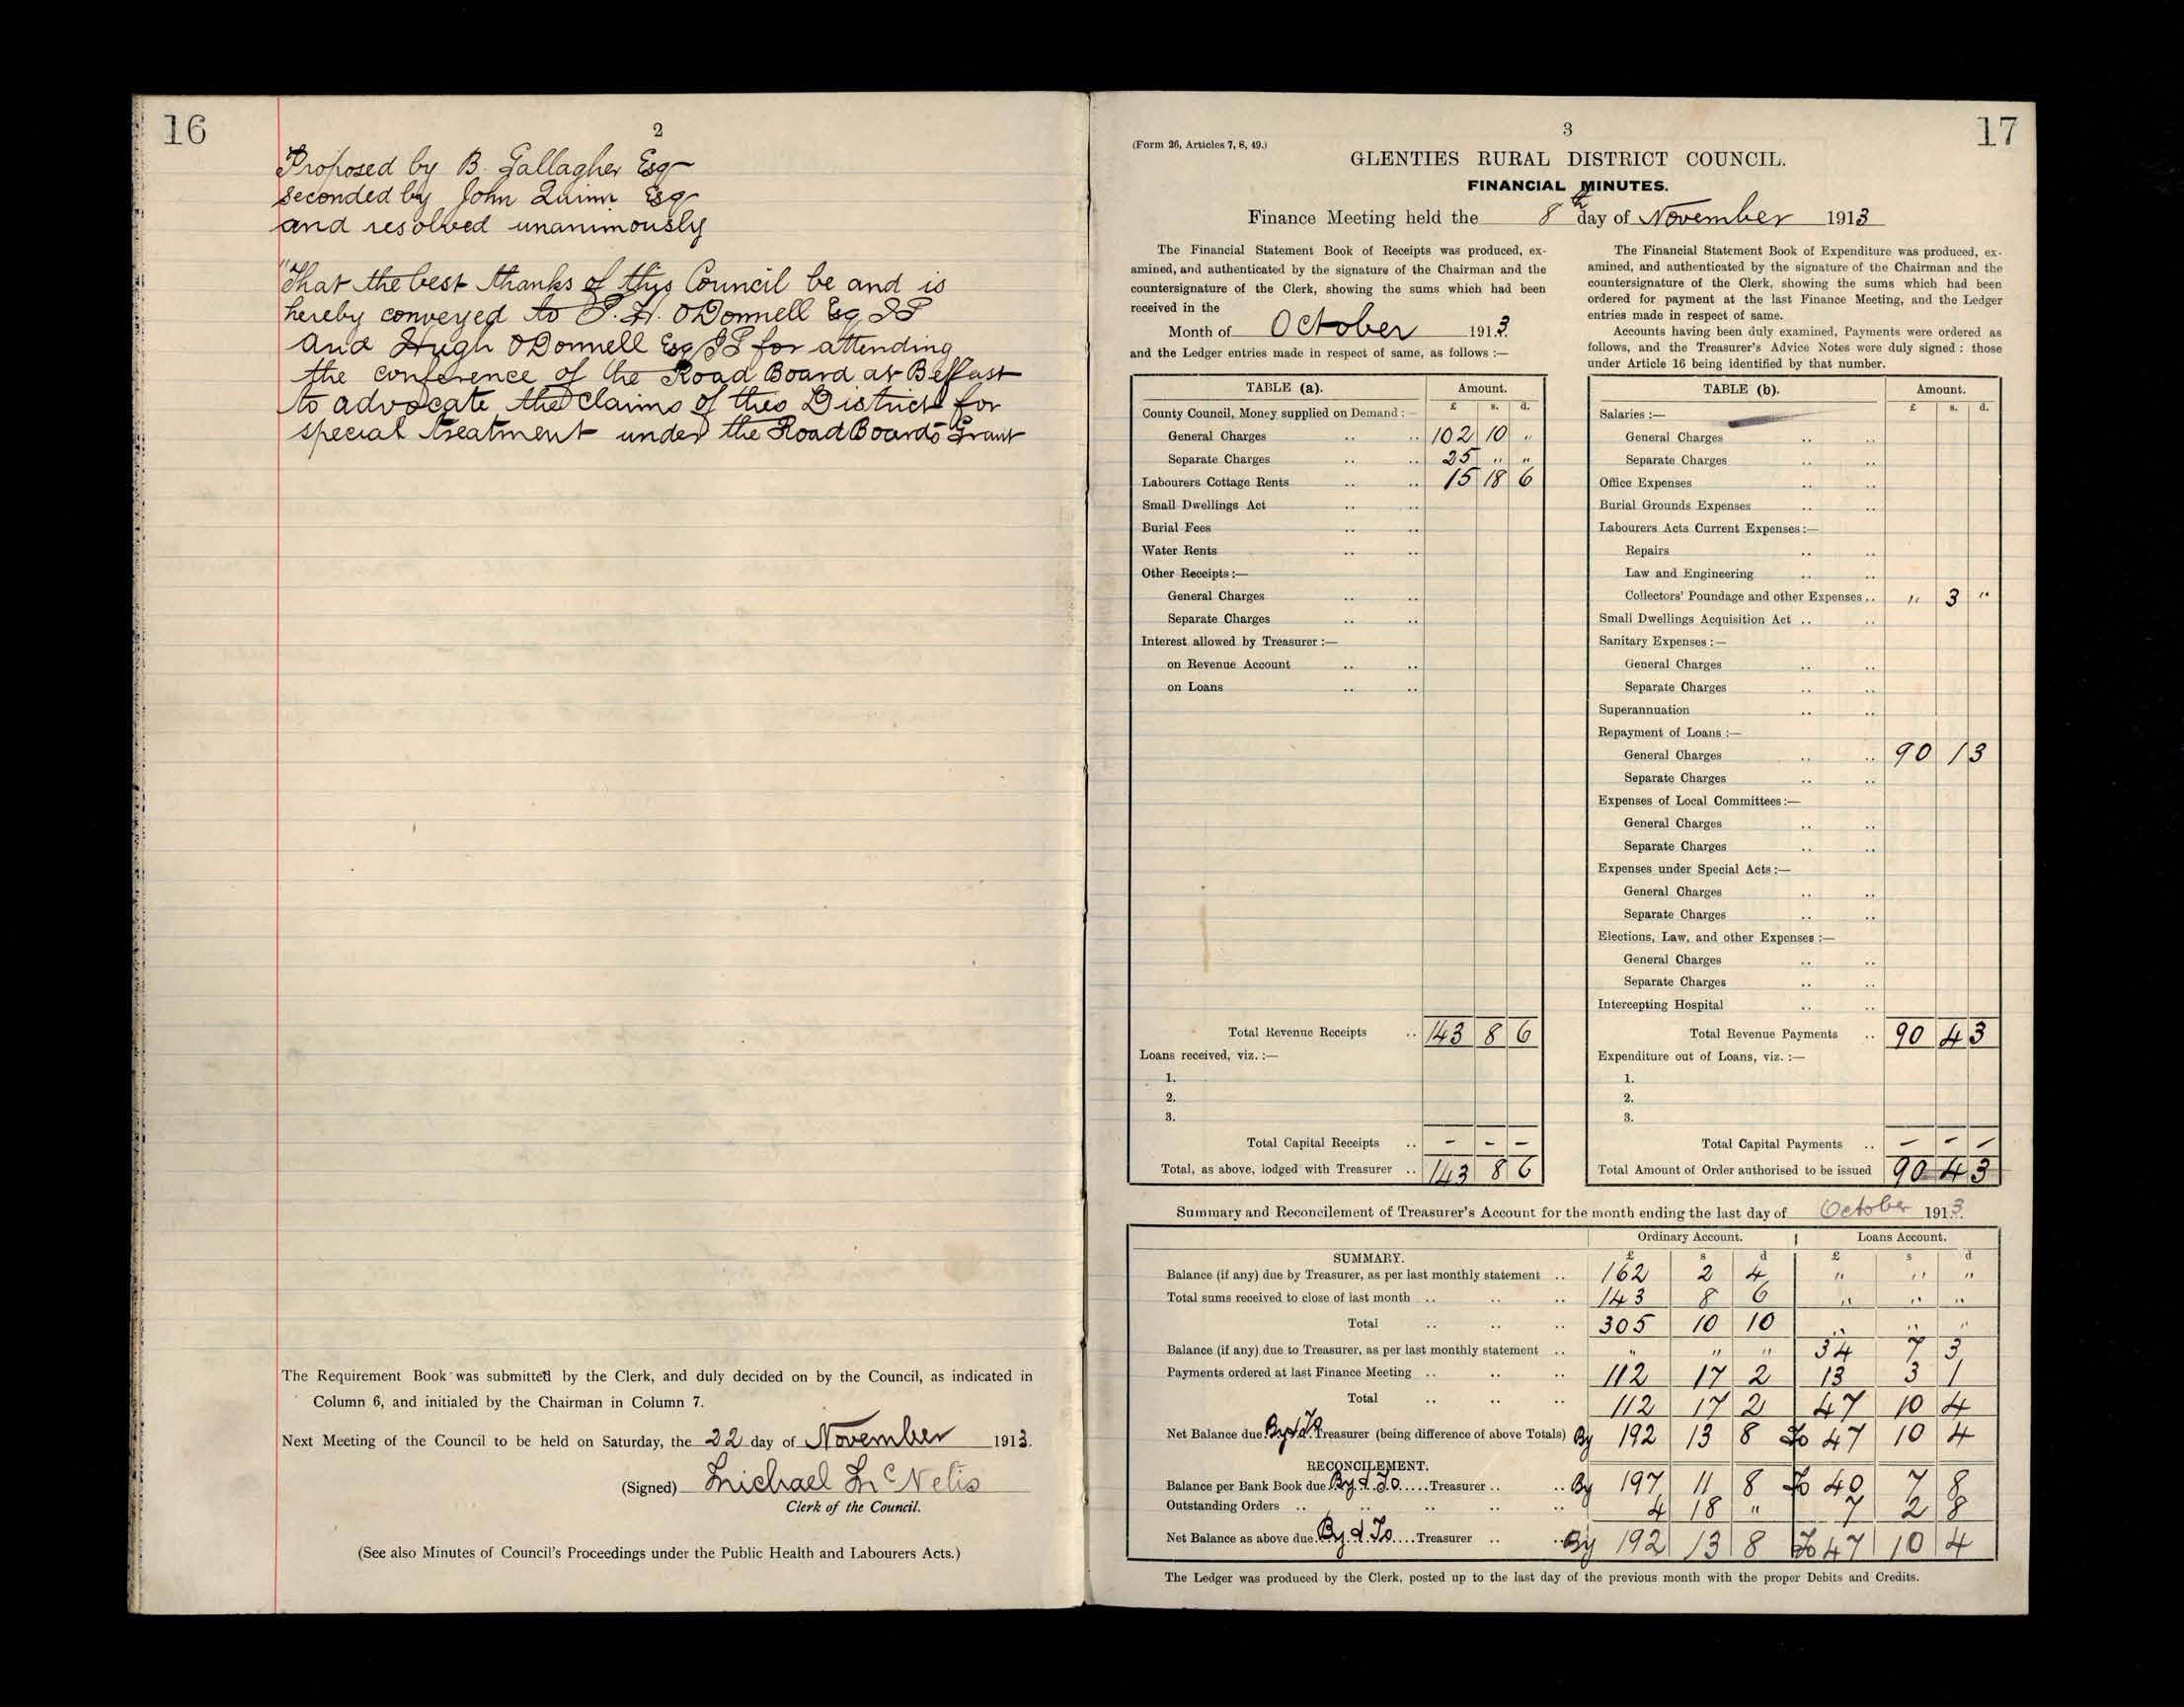 16
2
Proposed by B. Gallagher Esq
Seconded by John Quinn Esq
and resolved unanimously
"That the best thanks of this Council be and is
hereby conveyed to P. H. O'Donnell Esq JP
and Hugh O'Donnell Esq JP for attending
the conference of the Road Board at Belfast
to advocate the claims of this District for
special treatment under the Road Boards Grant
The Requirement Book was submitted by the Clerk, and duly decided on by the Council, as indicated in
Column 6, and initialed by the Chairman in Column 7.
Next Meeting of the Council to be held on Saturday, the 22 day of November 1913.
(Signed) Michael McNelis
Clerk of the Council.
(See also Minutes of Council's Proceedings under the Public Health and Labourers Acts.)
3
17
(Form 26, Articles 7, 8, 49.)
GLENTIES RURAL DISTRICT COUNCIL.
FINANCIAL MINUTES.
Finance Meeting held the 8th day of November 1913
The Financial Statement Book of Receipts was produced, ex-
amined, and authenticated by the signature of the Chairman and the
countersignature of the Clerk, showing the sums which had been
received in the
Month of October 1913.
and the Ledger entries made in respect of same, as follows :—
TABLE (a). Amount.
£ s. d.
County Council, Money supplied on Demand :—
General Charges .. .. 102 10 "
Separate Charges .. .. 25 " "
Labourers Cottage Rents .. .. 15 18 6
Small Dwellings Act .. ..
Burial Fees .. ..
Water Rents .. ..
Other Receipts :—
General Charges .. ..
Separate Charges .. ..
Interest allowed by Treasurer :—
on Revenue Account .. ..
on Loans .. ..
Total Revenue Receipts .. 143 8 6
Loans received, viz. :—
1.
2.
3.
Total Capital Receipts .. - - -
Total, as above, lodged with Treasurer .. 143 8 6
The Financial Statement Book of Expenditure was produced, ex-
amined, and authenticated by the signature of the Chairman and the
countersignature of the Clerk, showing the sums which had been
ordered for payment at the last Finance Meeting, and the Ledger
entries made in respect of same.
Accounts having been duly examined, Payments were ordered as
follows, and the Treasurer's Advice Notes were duly signed : those
under Article 16 being identified by that number.
TABLE (b). Amount.
£ s. d.
Salaries :—
General Charges .. ..
Separate Charges .. ..
Office Expenses .. ..
Burial Grounds Expenses .. ..
Labourers Acts Current Expenses :—
Repairs .. ..
Law and Engineering .. ..
Collectors' Poundage and other Expenses .. " 3 "
Small Dwellings Acquisition Act .. ..
Sanitary Expenses :—
General Charges .. ..
Separate Charges .. ..
Superannuation .. ..
Repayment of Loans :—
General Charges .. .. 90 1 3
Separate Charges .. ..
Expenses of Local Committees :—
General Charges .. ..
Separate Charges .. ..
Expenses under Special Acts :—
General Charges .. ..
Separate Charges .. ..
Elections, Law, and other Expenses :—
General Charges .. ..
Separate Charges .. ..
Intercepting Hospital .. ..
Total Revenue Payments .. 90 4 3
Expenditure out of Loans, viz. :—
1.
2.
3.
Total Capital Payments .. - - -
Total Amount of Order authorised to be issued 90 4 3
Summary and Reconcilement of Treasurer's Account for the month ending the last day of October 1913.
Ordinary Account. Loans Account.
SUMMARY. £ s d £ s d
Balance (if any) due by Treasurer, as per last monthly statement .. 162 2 4 " " "
Total sums received to close of last month .. .. .. 143 8 6 " " "
Total .. .. .. 305 10 10 " " "
Balance (if any) due to Treasurer, as per last monthly statement .. " " " 34 7 3
Payments ordered at last Finance Meeting .. .. .. 112 17 2 13 3 1
Total .. .. .. 112 17 2 47 10 4
Net Balance due By & To Treasurer (being difference of above Totals) By 192 13 8 To 47 10 4
RECONCILEMENT.
Balance per Bank Book due By & To Treasurer .. .. By 197 11 8 To 40 7 8
Outstanding Orders .. .. .. .. .. 4 18 " 7 2 8
Net Balance as above due By & To Treasurer .. .. By 192 13 8 To 47 10 4
The Ledger was produced by the Clerk, posted up to the last day of the previous month with the proper Debits and Credits.